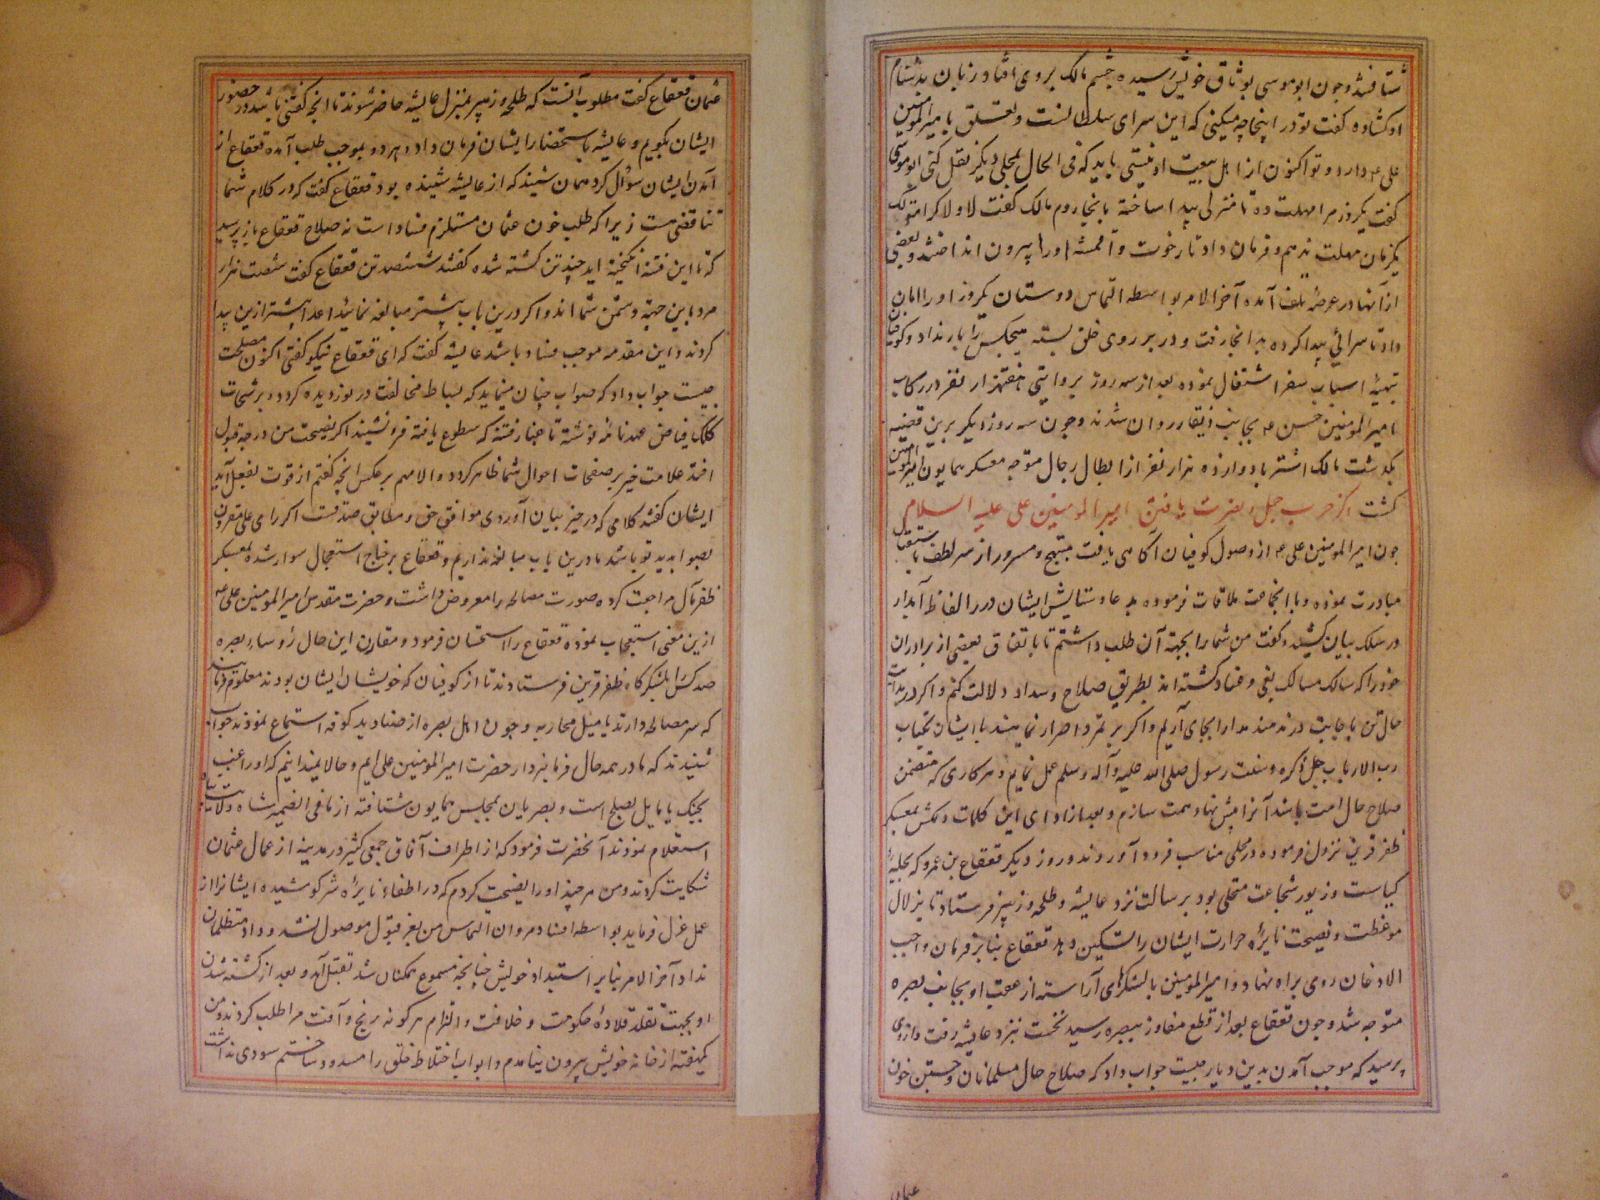 شتافتند و چون ابو موسی بوثاق خویش رسیده چشم مالک بر وی افتاد زبان بدشنام
او کشاده گفت تو در اینجا چه میکنی که این سرای سلطانست و تعلق بامیرالمومنین
علی ع دارد و تو اکنون از اهل بیعت او نیستی باید که فی الحال بمحلی دیگر نقل کنی ابو موسی
گفت یکروز مرا مهلت ده تا منزلی پیدا ساخته بانجا روم مالک گفت لا ولا کرامة لک
یکزمان مهلت ندهم و فرمان داد تا رخوت و اقمشه او را بیرون انداختند و بعضی
از آنها در عرضه تلف آمده آخر الامر بواسطه التماس دوستان یکروز او را امان
داد تا سرائی پیدا کرده بدانجا رفت و در بر روی خلق بسته هیچکس را بار نداد و
تهیهٔ اسباب سفر اشتغال نموده بعد از سه روز بروایتی هفتهزار نفر در رکاب
امیرالمومنین حسن ع بجانب ذیقار روان شدند و چون سه روز دیگر برین قضیه
بگذشت مالک اشتر با دوازده هزار نفر از ابطال رجال متوجه معسکر همایون امیرالمومنین
گشت ذکر حرب جمل و نصرت یافتن امیرالمومنین علی علیه السلام
چون امیرالمومنین علی ع از وصول کوفیان آگاهی یافت مبتهج و مسرور از سر لطف باستقبال
مبادرت نموده و با انجماعت ملاقات فرموده بدعا و ستایش ایشان درر الفاظ آبدار
در سلک بیان کشید و گفت من شما را بجهة آن طلب داشتم تا باتفاق بعضی از برادران
خود را که سالک مسالک بغی و فساد گشته اند بطریق صلاح و سداد دلالت کنم و اگر در بدایت
حال تن باجابت در ندهند مدارا بجای آریم و اگر بر تمرد اصرار نمایند با ایشان بکتاب
رب الارباب جل ذکره و سنت رسول صلی الله علیه و آله وسلم عمل نمایم و هر کاری که متضمن
صلاح حال امت باشد آنرا پیش نهاد همت سازم و بعد از ادای این کلمات دلکش بمعسکر
ظفر قرین نزول فرموده در محلی مناسب فرود آوردند و روز دیگر قعقاع بن عمرو که بحلیهٔ
کیاست و زیور شجاعت متحلی بود برسالت نزد عایشه و طلحه و زبیر فرستاد تا بزلال
موعظت و نصیحت نایرهٔ حرارت ایشان را تسکین دهد قعقاع بنابر فرمان واجب
الاذعان روی براه نهاد و امیرالمومنین با لشکرهای آراسته از عقب او بجانب بصره
متوجه شد و چون قعقاع بعد از قطع مفاوز ببصره رسید نخست نزد عایشه رفت و از وی
پرسید که موجب آمدن بدین دیار چیست جواب داد که صلاح حال مسلمانان و جستن خون
عثمان
عثمان قعقاع گفت مطلوب آنست که طلحه و زبیر بمنزل عایشه حاضر شوند تا انچه گفتنی باشد در حضور
ایشان بگویم و عایشه باستحضار ایشان فرمان داد و هر دو بموجب طلب آمده قعقاع از
آمدن ایشان سوال کرد همان شنید که از عایشه شنیده بود قعقاع گفت که در کلام شما
تناقضی هست زیرا که طلب خون عثمان مستلزم فساد است نه صلاح قعقاع باز پرسید
که تا این فتنه انگیخته اید چند تن کشته شده گفتند ششصد تن قعقاع گفت شصت هزار
مرد باین جهة دشمن شما اند و اگر درین باب بیشتر مبالغه نمائید اعدا بیشتر ازین پیدا
گردند و این مقدمه موجب فساد باشد عایشه گفت که ای قعقاع نیکو گفتی اکنون مصلحت
چیست جواب داد که صواب چنان مینماید که بساط مخالفت در نوردیده گردد و برشحات
کلک فیاض عهدنامهٔ نوشته تا غبار فتنه که سطوع یافته فرو نشیند اگر نصیحت من در درجه قبول
افتد علامت خیر بر صفحات احوال شما ظاهر گردد و الا مهم بر عکس انچه گفتم از قوت بفعل آید
ایشان گفتند کلامی که در حیز بیان آوردی موافق حق و مطابق صدقست اگر رای علی مقرون
بصوابدید تو باشد ما درین باب مبالغه نداریم و قعقاع بر جناح استعجال سوار شده بمعسکر
ظفر مآل مراجعت کرده صورت مصالحه را معروض داشت و حضرت مقدس امیرالمومنین علی ع
ازین معنی استعجاب نموده قعقاع را استحسان فرمود و مقارن این حال روساء بصره
صد کس را بلشکرگاه ظفر قرین فرستادند تا از کوفیان که خویشان ایشان بودند معلوم فرمایند
که سر مصالحه دارند یا میل محاربه و چون اهل بصره از صنادید کوفه استماع نمودند جواب
شنیدند که ما در همه حال فرمانبردار حضرت امیرالمومنین علی ایم و حالا نمیدانیم که او راغب
بجنگ یا مایل بصلح است و بصریان بمجلس همایون شتافته از ما فی الضمیر شاه ولایت پناه
استعلام نمودند آنحضرت فرمود که از اطراف آفاق جمعی کثیر در مدینه از عمال عثمان
شکایت کردند و من هر چند او را نصیحت کردم که در اطفاء نایرهٔ شر کوشیده ایشانرا از
عمل عزل فرماید بواسطه افساد مروان التماس من بعز قبول موصول نشد و داد متظلمان
نداد آخر الامر بنابر استبداد خویش چنانچه مسموع همکنان شد بقتل آمد و بعد از کشته شدن
او بجهت تقلد قلادهٔ حکومت و خلافت و التزام هر گونه رنج و آفت مرا طلب کردند و من
یکهفته از خانه خویش بیرون نیامدم و ابواب اختلاط خلق را مسدود ساختم سودی نداشت